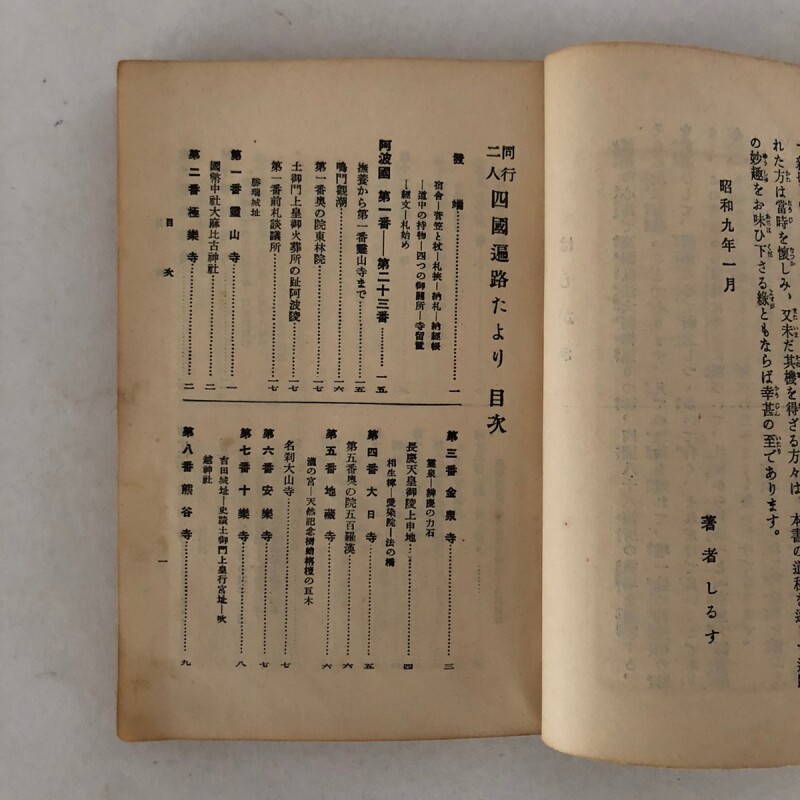 れた方は當時を懷しみ、又未だ其機を得ざる方々は、本書の道程を
の妙趣をお味ひ下さる緣ともならば幸甚の至であります。
昭和九年一月
著者しるす
同行二人 四國遍路たより 目次
發端……一
宿舍―菅笠と杖―札挾―納札―納經帳
―道中の持物―四つの御關所―寺留置
―經文―札始め
阿波國 第一番――第二十三番……一五
撫養から第一番靈山寺まで……一五
鳴門觀潮……一六
第一番奧の院東林院……一七
土御門上皇御火葬所の趾阿波陵……一七
第一番前札談議所……一七
勝瑞城址
第一番靈山寺……一
國幣中社大麻比古神社……二
第二番極樂寺……二
第三番金泉寺……三
靈泉―辨慶の力石
長慶天皇御陵上申地……四
相生―愛染院―法の橋
第四番大日寺……五
第五番奧の院五百羅漢……六
第五番地藏寺……六
瀧の宮―天然記念樹の亙木
名刹大山寺……七
第六番安樂寺……七
第七番十樂寺……八
吉田城址―史談土御門上皇行宮址―吹
越神社
第八番熊谷寺……九
目次
一